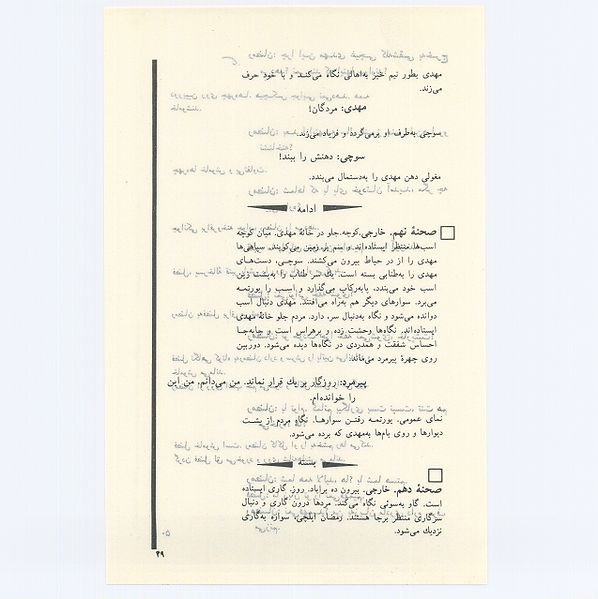 مهدی بطور نیم خیز به‌اهالی نگاه می‌کند و با خود حرف
می‌زند.
مهدی: مردگان!
سوچی به‌طرف او برمی‌گردد و فریاد می‌زند.
سوچی: دهنش را ببند!
مغولی دهن مهدی را به‌دستمال می‌بندد.
ادامه
صحنهٔ نهم. خارجی. کوچه. جلو در خانهٔ مهدی. میان کوچه
اسب‌ها منتظر ایستاده‌اند و سم بر زمین می‌کوبند. سپاهی‌ها
مهدی را از در حیاط بیرون می‌کشند. سوچی، دست‌های
مهدی را به‌طنابی بسته است. یك سر طناب را به‌پشت زین
اسب خود می‌بندد، پابه‌رکاب می‌گذارد و اسب را یورتمه
می‌برد. سوارهای دیگر هم به‌راه می‌افتند. مهدی دنبال اسب
دوانده می‌شود و نگاه به‌دنبال سر، دارد. مردم جلو خانهٔ مهدی
ایستاده‌اند. نگاه‌ها وحشت زده و پرهراس است و جابه‌جا
احساس شفقت و همدردی در نگاه‌ها دیده می‌شود. دوربین
روی چهرهٔ پیرمرد می‌ماند:
پیرمرد: روزگار بر یك قرار نماند. من می‌دانم. من این
را خوانده‌ام.
نمای عمومی. یورتمه رفتن سوارها. نگاه مردم از پشت
دیوارها و روی بام‌ها به‌مهدی که برده می‌شود.
بسته
صحنهٔ دهم. خارجی. بیرون ده پرآباد. روز. گاری ایستاده
است. گاو به‌سوئی نگاه می‌کند. مردها درون گاری و دنبال
سرگاری منتظر برجا هستند. رمضان ایلچی، سواره به‌گاری
نزدیك می‌شود.
۴۹